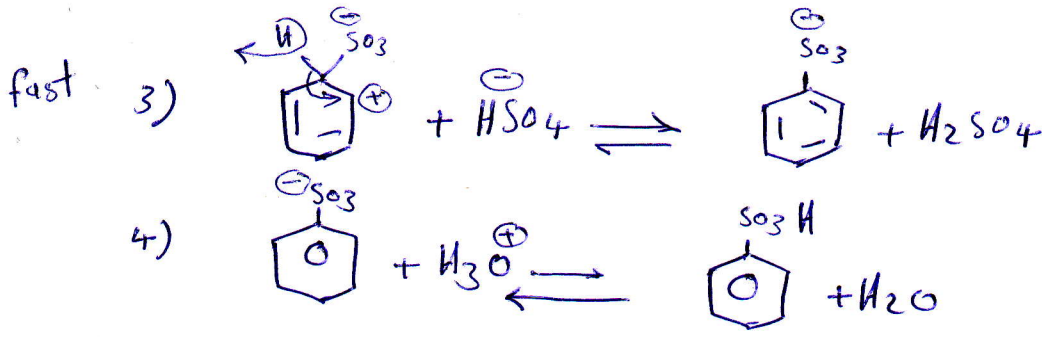 fast 3) H SO3⊖ ⊕ + HSO4⊖ ⇌ SO3⊖ + H2SO4
4) ⊖SO3 + H3O⊕ ⇌ SO3H + H2O